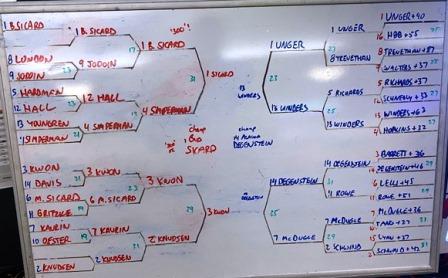 1 B.SICARD
1 B. SICARD
8 LONDON
9 JODOIN
9 JODOIN
5 HARDMEN
12 HALL
12 HALL
13 YOUNGREN
4 SIMPERMAN
4 SIMPERMAN
3 KWON
3 KWON
14 DAVIS
6 M. SICARD
6 M. SICARD
11 BRITZIUS
7 KAURIN
7 KAURIN
10 OESTER
2 KNUDSEN
2 KNUDSEN
1 B. SICARD
4 SIMPERMAN
3 KWON
2 KNUDSEN
1 SICARD
3 KWON
champ
SICARD
champ
DEGENSTEIN
13 WINDERS
1 UNGER
13 WINDERS
14 DEGENSTEIN
7 McDUGLE
1 UNGER
8 TREVETHAN
5 RICHARDS
13 WINDERS
14 DEGENSTEIN
11 ROWE
7 McDUGLE
2 SCHWIND
1 UNGER+40
16 HBB+55
8 TREVETHAN+37
5 RICHARDS+37
13 WINDERS+63
4 HOPKINS+32
3 BARRETT+36
14 DEGENSTEIN+46
6 LELLI+45
11 ROWE+51
7 McDUGLE+36
15 LYNN+37
2 SCHWIND+42